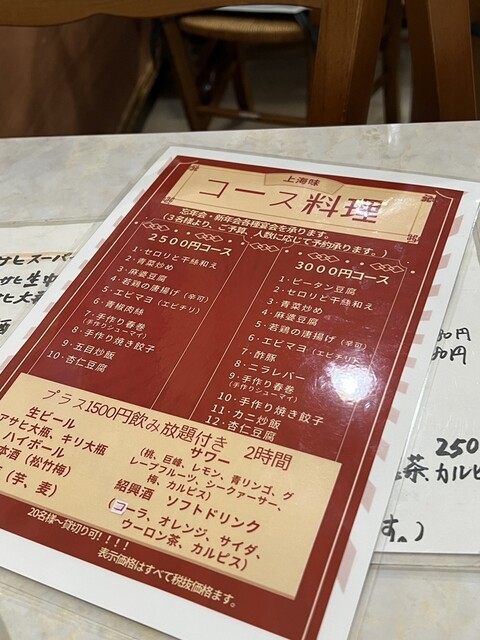 上海味
コース料理
忘年会・新年会各種宴会を承ります。
(3名様より、ご予算、人数に応じて予約承ります。)
2500円コース
1・セロリと干絲和え
2・青菜炒め
3・麻婆豆腐
4・若鶏の唐揚げ(辛可)
5・エビマヨ(エビチリ)
6・青椒肉絲
7・手作り春巻
(手作りシューマイ)
8・手作り焼き餃子
9・五目炒飯
10・杏仁豆腐
3000円コース
1・ピータン豆腐
2・セロリと干絲和え
3・青菜炒め
4・麻婆豆腐
5・若鶏の唐揚げ(辛可)
6・エビマヨ(エビチリ)
7・酢豚
8・ニラレバー
9・手作り春巻
(手作りシューマイ)
10・手作り焼き餃子
11・カニ炒飯
12・杏仁豆腐
プラス1500円飲み放題付き 2時間
生ビール
アサヒ大瓶、キリ大瓶
ハイボール
本酒(松竹梅)
(芋、麦)
サワー
(桃、巨峰、レモン、青リンゴ、グ
レープフルーツ、シークァーサー、
梅、カルピス)
紹興酒 ソフトドリンク
(コーラ、オレンジ、サイダ、
ウーロン茶、カルピス)
20名様〜貸切り可!!!!
表示価格はすべて税抜価格ます。
サヒスーパー
サヒ生中
サヒ大
酒
80円
80円
250
茶、カルピ
す。)